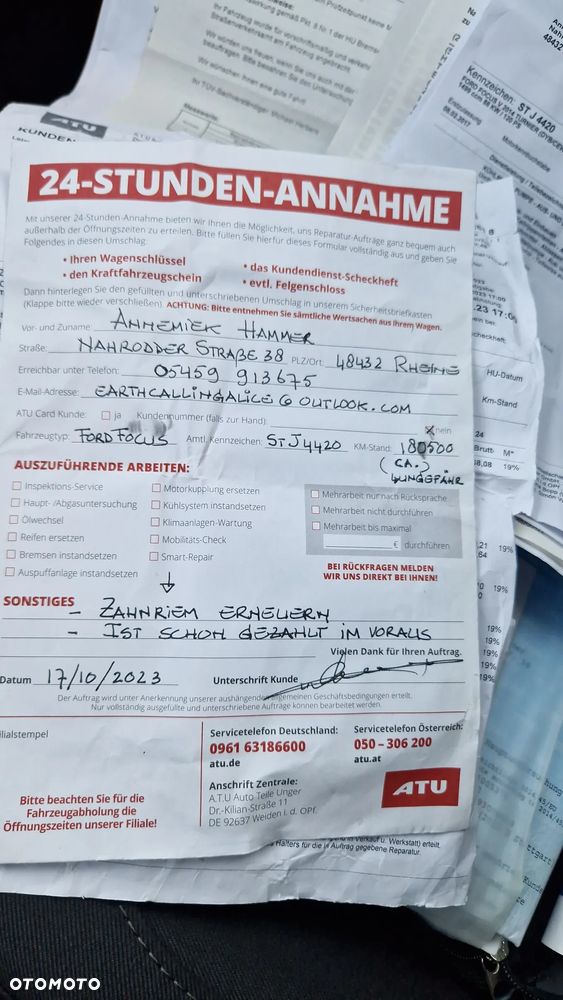 Ihr Fahrzeug wurde für
Wir wünschen Ihnen eine gute Fahrt
Kennzeichen: ST J 4420
FORD FOCUS V 2014 TURNIER (DYB/CEW
Erstzulassung
09.02.2017
48432
ATU
KUNDEN
24-STUNDEN-ANNAHME
Mit unserer 24-Stunden-Annahme bieten wir Ihnen die Möglichkeit, uns Reparatur-Aufträge ganz bequem auch
außerhalb der Öffnungszeiten zu erteilen. Bitte füllen Sie hierfür dieses Formular vollständig aus und geben Sie
Folgendes in diesen Umschlag:
• Ihren Wagenschlüssel
• den Kraftfahrzeugschein
• das Kundendienst-Scheckheft
• evtl. Felgenschloss
Dann hinterlegen Sie den gefüllten und unterschriebenen Umschlag in unserem Sicherheitsbriefkasten
(Klappe bitte wieder verschließen). ACHTUNG: Bitte entnehmen Sie sämtliche Wertsachen aus Ihrem Wagen.
Vor- und Zuname: ANNEMIEK HAMMER
Straße: NAHRODDER STRAßE 38 PLZ/Ort: 48432 RHEINE
Erreichbar unter Telefon: 05459 913675
E-Mail-Adresse: EARTHCALLINGALICE@OUTLOOK.COM
ATU Card Kunde: ja Kundennummer (falls zur Hand): nein
Fahrzeugtyp: FORD FOCUS Amtl. Kennzeichen: ST J 4420 KM-Stand: 180500
(CA.)
UNGEFÄHR
AUSZUFÜHRENDE ARBEITEN:
Inspektions-Service
Haupt- /Abgasuntersuchung
Ölwechsel
Reifen ersetzen
Bremsen instandsetzen
Auspuffanlage instandsetzen
Motorkupplung ersetzen
Kühlsystem instandsetzen
Klimaanlagen-Wartung
Mobilitäts-Check
Smart-Repair
Mehrarbeit nur nach Rücksprache
Mehrarbeit nicht durchführen
Mehrarbeit bis maximal
€ durchführen
BEI RÜCKFRAGEN MELDEN
WIR UNS DIREKT BEI IHNEN!
SONSTIGES - ZAHNRIEM ERNEUERN
- IST SCHON GEZAHLT IM VORAUS
Vielen Dank für Ihren Auftrag.
Datum 17/10/2023 Unterschrift Kunde
Der Auftrag wird unter Anerkennung unserer aushängenden allgemeinen Geschäftsbedingungen erteilt.
Nur vollständig ausgefüllte und unterschriebene Aufträge können bearbeitet werden.
ilialstempel
Bitte beachten Sie für die
Fahrzeugabholung die
Öffnungszeiten unserer Filiale!
Servicetelefon Deutschland:
0961 63186600
atu.de
Servicetelefon Österreich:
050 – 306 200
atu.at
Anschrift Zentrale:
A.T.U Auto Teile Unger
Dr.-Kilian-Straße 11
DE 92637 Weiden i. d. OPf.
ATU
HU-Datum
Km-Stand
OTOMOTO